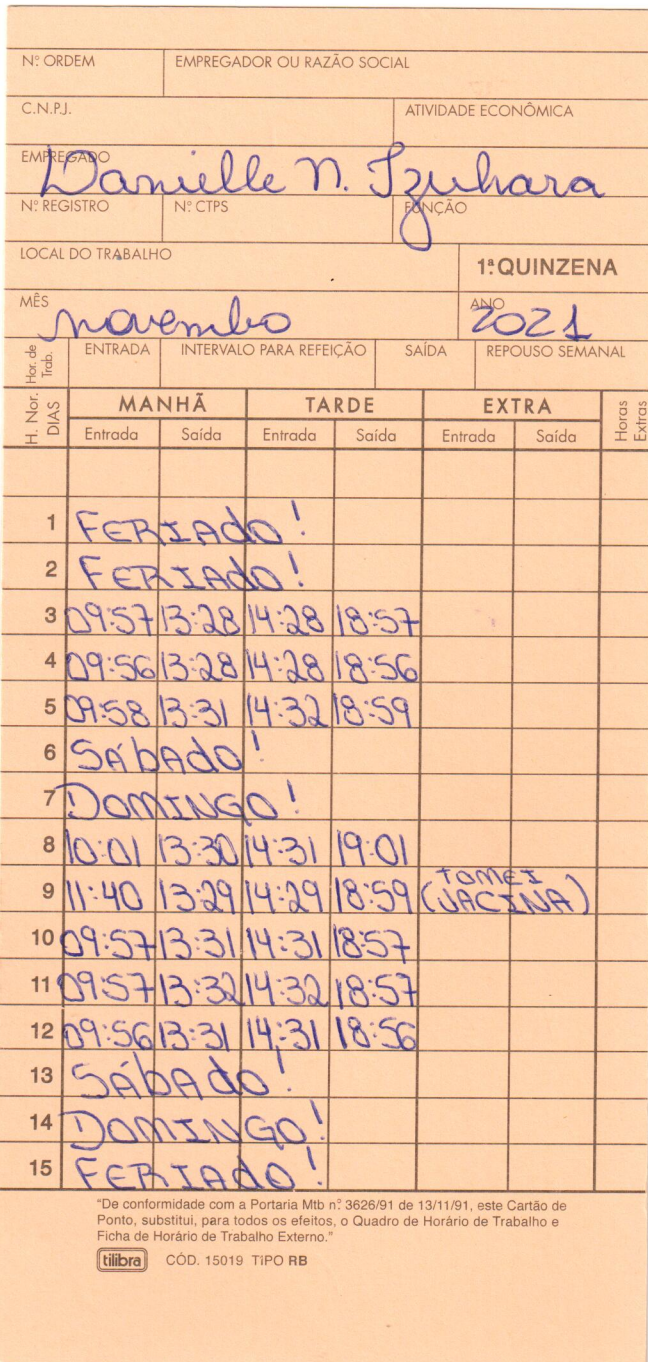 Nº ORDEM EMPREGADOR OU RAZÃO SOCIAL
C.N.P.J. ATIVIDADE ECONÔMICA
EMPREGADO
Danielle N. Izuhara
Nº REGISTRO Nº CTPS FUNÇÃO
LOCAL DO TRABALHO 1ª QUINZENA
MÊS ANO
novembo 2021
Hor. de Trab. ENTRADA INTERVALO PARA REFEIÇÃO SAÍDA REPOUSO SEMANAL
H. Nor. DIAS MANHÃ TARDE EXTRA Horas Extras
Entrada Saída Entrada Saída Entrada Saída
1 FERIADO!
2 FERIADO!
3 09:57 13:28 14:28 18:57
4 09:56 13:28 14:28 18:56
5 09:58 13:31 14:32 18:59
6 SÁBADO!
7 DOMINGO!
8 10:01 13:30 14:31 19:01
9 11:40 13:29 14:29 18:59 (TOMEI VACINA)
10 09:57 13:31 14:31 18:57
11 09:57 13:32 14:32 18:57
12 09:56 13:31 14:31 18:56
13 SÁBADO!
14 DOMINGO!
15 FERIADO!
"De conformidade com a Portaria Mtb nº 3626/91 de 13/11/91, este Cartão de
Ponto, substitui, para todos os efeitos, o Quadro de Horário de Trabalho e
Ficha de Horário de Trabalho Externo."
tilibra CÓD. 15019 TIPO RB